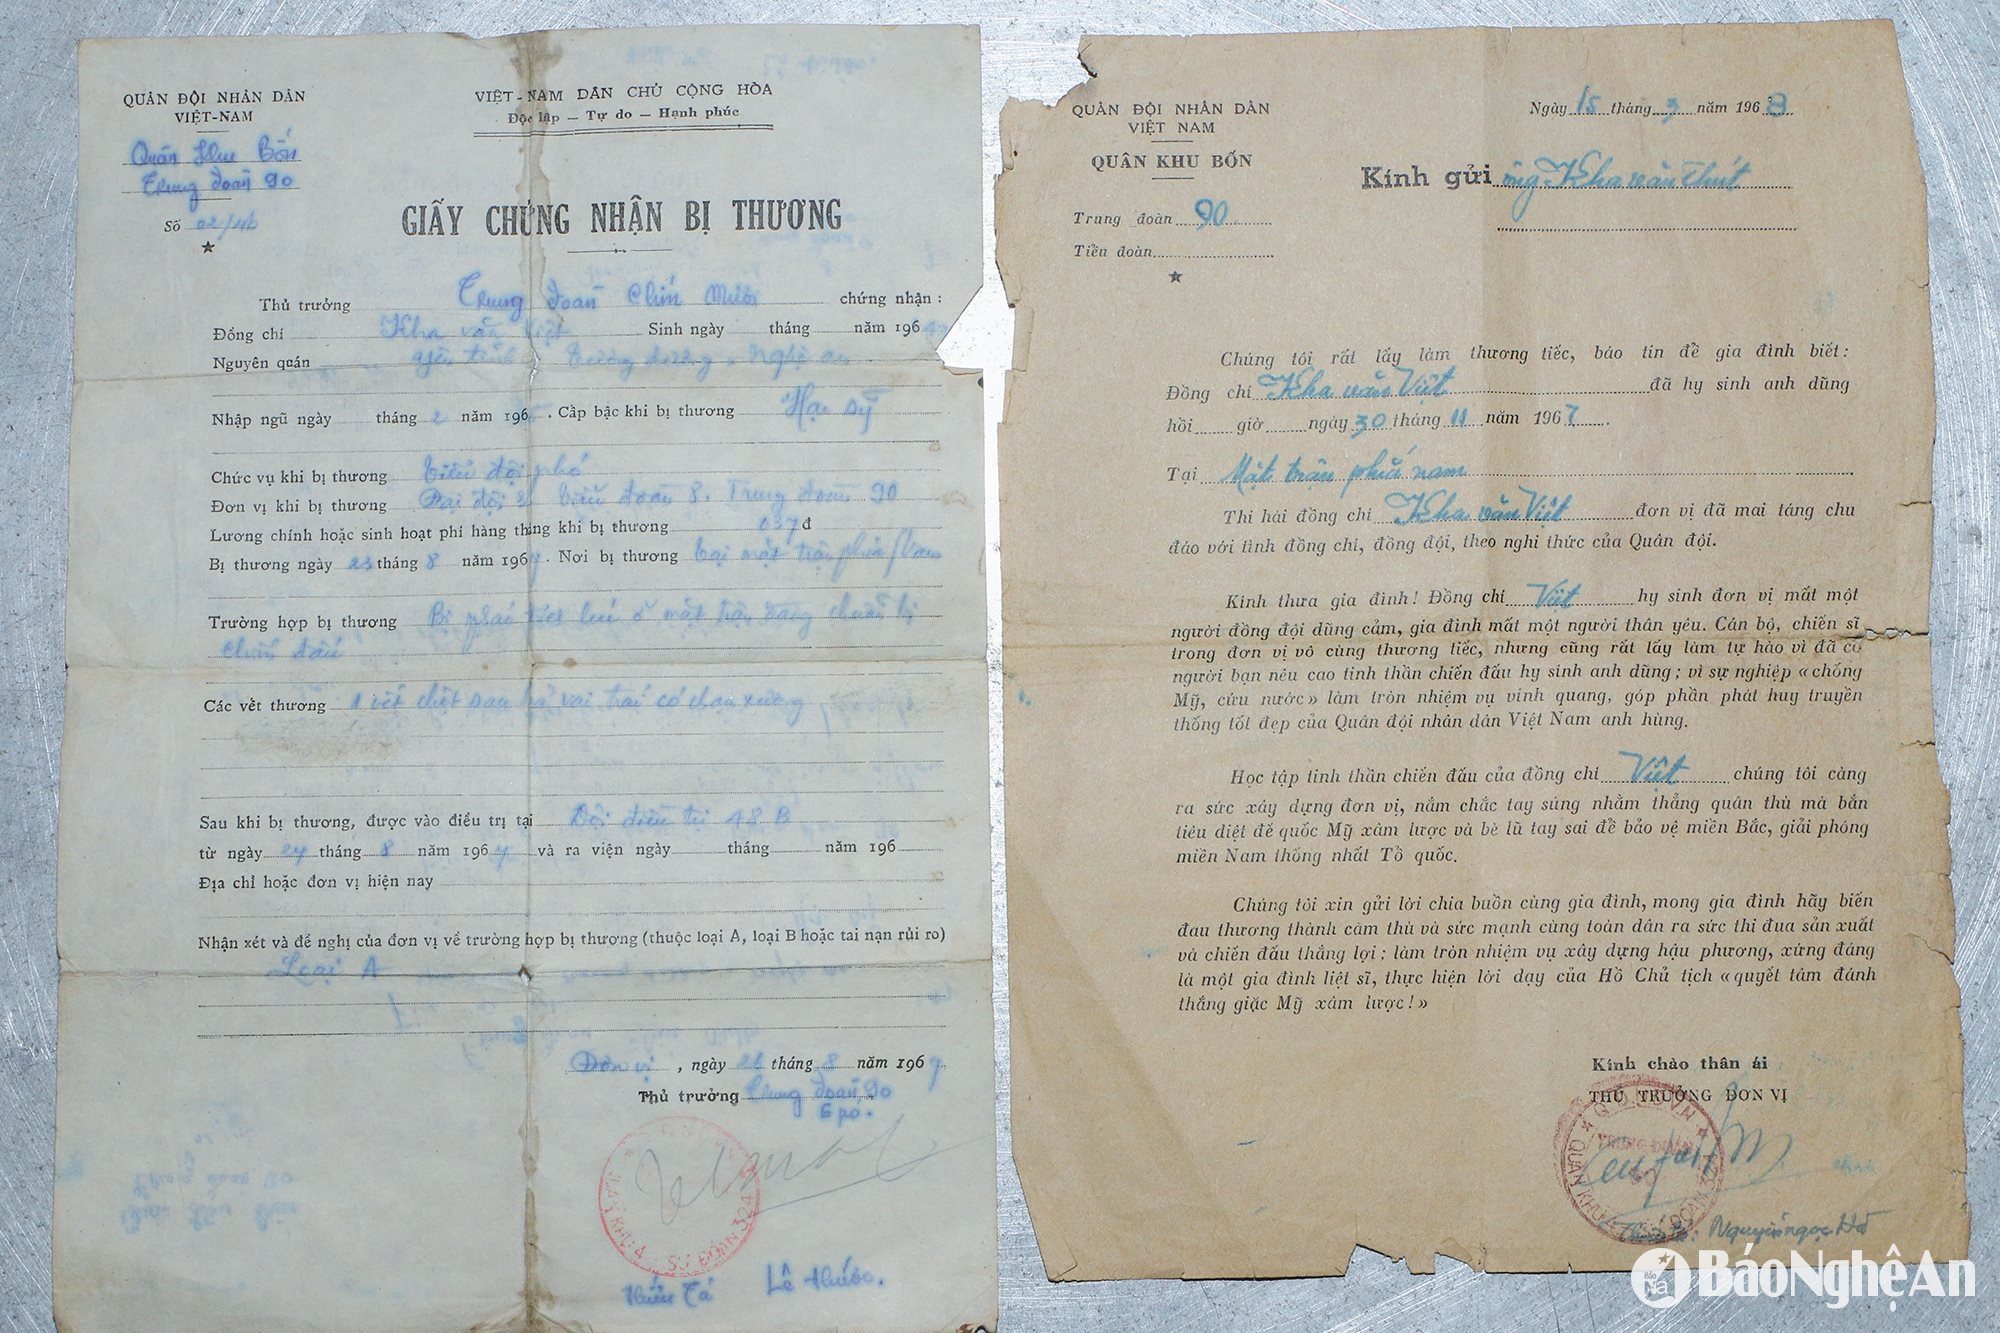 QUÂN ĐỘI NHÂN DÂN
VIỆT-NAM
Quân khu Bốn
Trung đoàn 90
Số 02/
VIỆT-NAM DÂN CHỦ CỘNG HÒA
Độc lập — Tự do — Hạnh phúc
GIẤY CHỨNG NHẬN BỊ THƯƠNG
Thủ trưởng Trung đoàn Chín Mươi chứng nhận :
Đồng chí Kha văn Việt Sinh ngày tháng năm 196
Nguyên quán Yên tĩnh tương dương, Nghệ an
Nhập ngũ ngày tháng 2 năm 196 . Cấp bậc khi bị thương Hạ sỹ
Chức vụ khi bị thương tiểu đội phó
Đơn vị khi bị thương Đại đội 3 tiểu đoàn 8. Trung đoàn 90
Lương chính hoặc sinh hoạt phí hàng tháng khi bị thương đ
Bị thương ngày 23 tháng 8 năm 1967. Nơi bị thương tại mặt trận phía Nam
Trường hợp bị thương Bị pháo lúc ở mặt trận đang chuẩn bị
chiến đấu
Các vết thương 1 vết chột sau bả vai trái có chạm xương
Sau khi bị thương, được vào điều trị tại Đội điều trị 48 B
từ ngày 24 tháng 8 năm 1967 và ra viện ngày tháng năm 196
Địa chỉ hoặc đơn vị hiện nay
Nhận xét và đề nghị của đơn vị về trường hợp bị thương (thuộc loại A, loại B hoặc tai nạn rủi ro)
Loại A
Đơn vị , ngày 26 tháng 8 năm 1967
Thủ trưởng Trung đoàn 90
SƯ ĐOÀN 324
Thiếu Tá Lê
QUÂN ĐỘI NHÂN DÂN
VIỆT NAM
QUÂN KHU BỐN
Trung đoàn 90
Tiểu đoàn
Ngày 15 tháng 3 năm 1968
Kính gửi ông Kha văn Thút
Chúng tôi rất lấy làm thương tiếc, báo tin để gia đình biết :
Đồng chí Kha văn Việt đã hy sinh anh dũng
hồi giờ ngày 30 tháng 11 năm 1967.
Tại Mặt trận phía nam
Thi hài đồng chí Kha văn Việt đơn vị đã mai táng chu
đáo với tình đồng chí, đồng đội, theo nghi thức của Quân đội.
Kính thưa gia đình ! Đồng chí Việt hy sinh đơn vị mất một
người đồng đội dũng cảm, gia đình mất một người thân yêu. Cán bộ, chiến sĩ
trong đơn vị vô cùng thương tiếc, nhưng cũng rất lấy làm tự hào vì đã có
người bạn nêu cao tinh thần chiến đấu hy sinh anh dũng ; vì sự nghiệp « chống
Mỹ, cứu nước » làm tròn nhiệm vụ vinh quang, góp phần phát huy truyền
thống tốt đẹp của Quân đội nhân dân Việt Nam anh hùng.
Học tập tinh thần chiến đấu của đồng chí Việt chúng tôi càng
ra sức xây dựng đơn vị, nắm chắc tay súng nhằm thẳng quân thù mà bắn
tiêu diệt đế quốc Mỹ xâm lược và bè lũ tay sai để bảo vệ miền Bắc, giải phóng
miền Nam thống nhất Tổ quốc.
Chúng tôi xin gửi lời chia buồn cùng gia đình, mong gia đình hãy biến
đau thương thành căm thù và sức mạnh cùng toàn dân ra sức thi đua sản xuất
và chiến đấu thắng lợi ; làm tròn nhiệm vụ xây dựng hậu phương, xứng đáng
là một gia đình liệt sĩ, thực hiện lời dạy của Hồ Chủ tịch « quyết tâm đánh
thắng giặc Mỹ xâm lược ! »
Kính chào thân ái
THỦ TRƯỞNG ĐƠN VỊ
TRUNG ĐOÀN
Nguyễn ngọc
BáoNghệAn